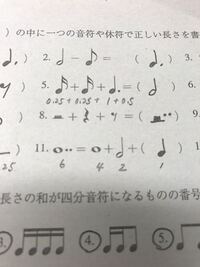 )の中に一つの音符や休符で正しい長さを書
2. 𝅗𝅥 - ♪ = ( ♩. ) 3.
5. 𝅘𝅥𝅯 + 𝅘𝅥𝅯 + ♩. = (
0.25+0.25+ 1+0.5
8. + + = ( ) 9.
11. 𝅝.. = 𝅝 + 𝅗𝅥 + ( ♩ )
.25 6 4 2 1
長さの和が四分音符になるものの番号
3. 4. 5.